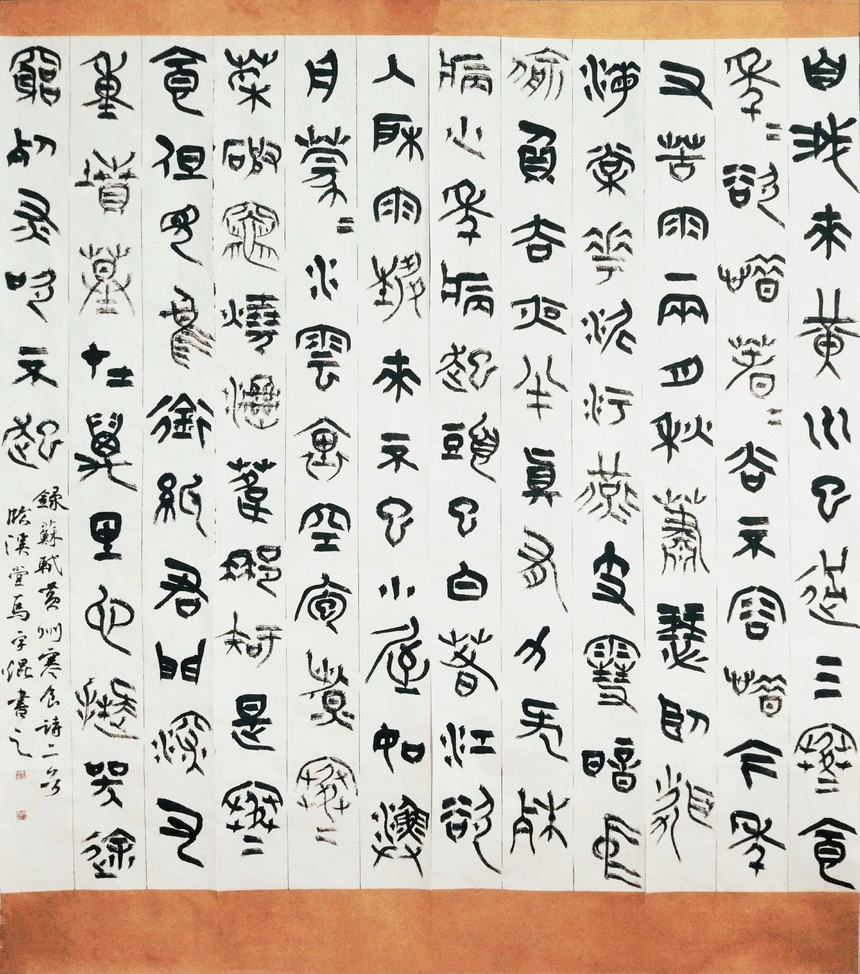 自我來黄州已過三寒〻食
年〻欲惜春〻去不容惜今年
又苦雨兩月秋蕭瑟卧聞
海棠花泥汙燕支雪暗中
偷負去夜半真有力何殊
病少年病起頭已白春江欲
入户雨勢來不已小屋如漁
舟蒙〻水雲裏空庖煮寒〻
菜破竈燒濕葦那知是寒〻
食但見烏銜紙君門深九
重墳墓在萬里也擬哭途
窮死灰吹不起
録蘇軾黄州寒食詩二首
臨溪堂馬書之